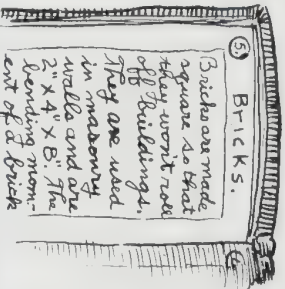 5. BRICKS.
Bricks are made
square so that
they won't roll
off Buildings.
They are used
in masonry
walls and are
2" x 4" x 8". The
bending mom-
ent of a brick